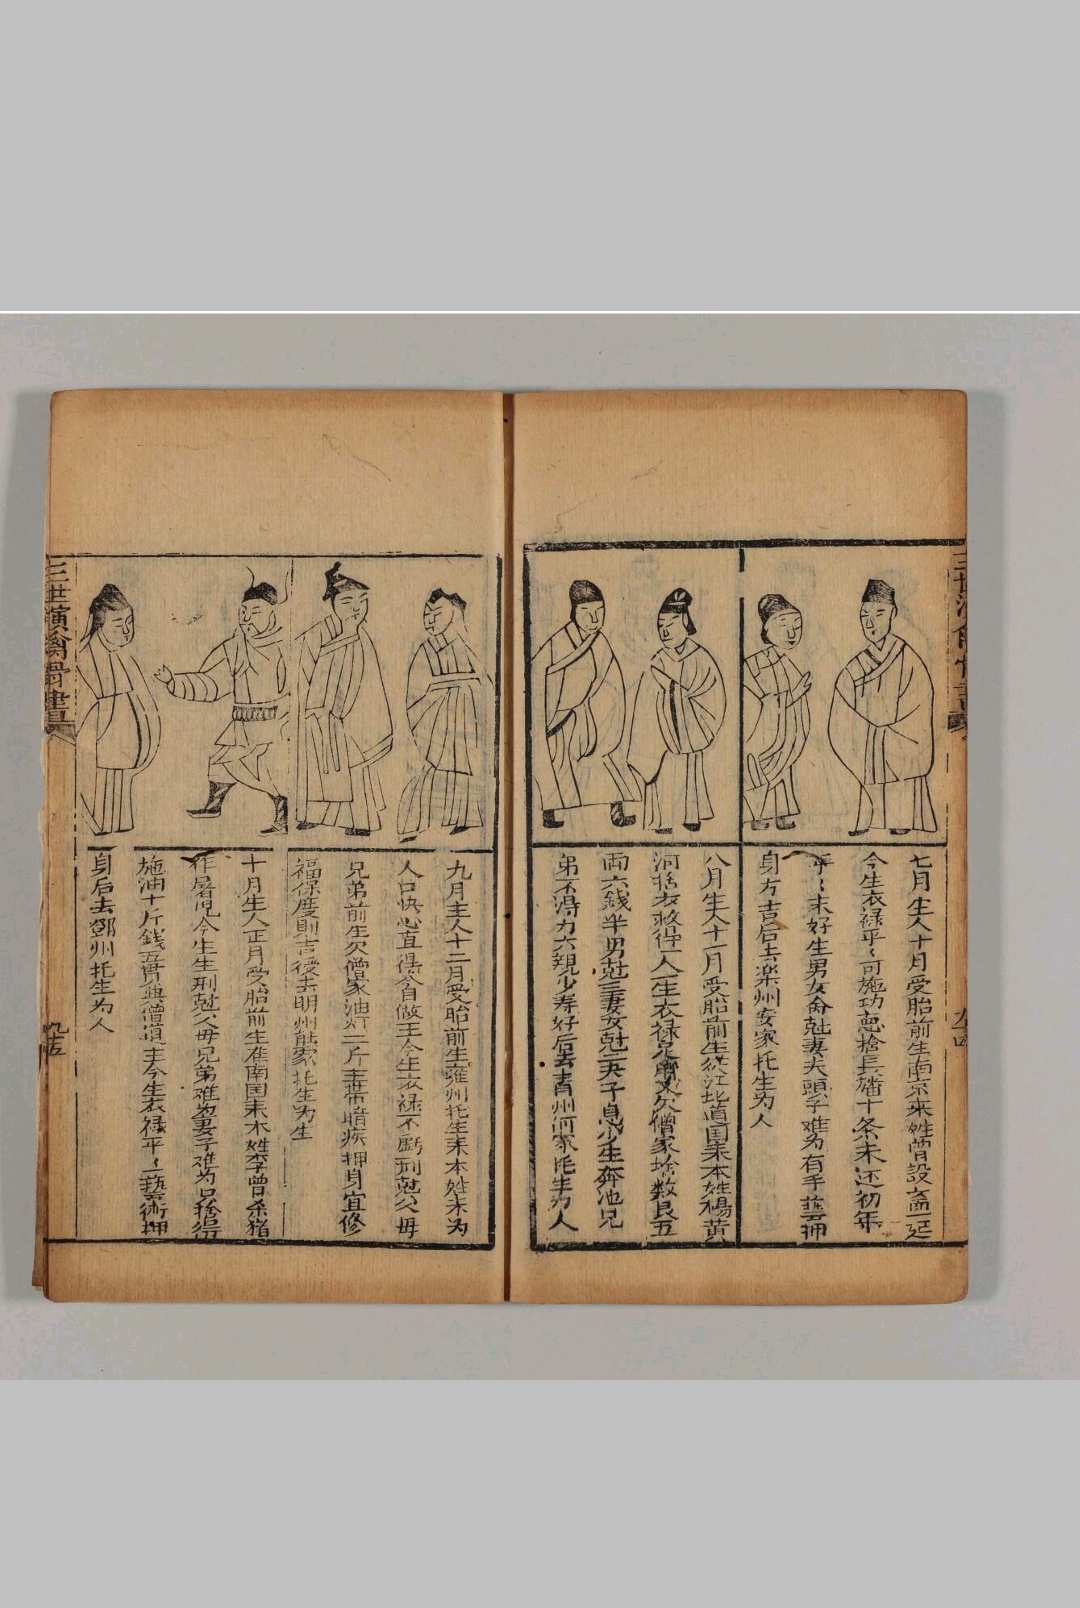 七月生人十月受胎前生南京來姓曾設齋一延
今生衣祿平〻可施功德捨長旛十条未还初年
平〻末好生男女命尅妻夫頭子难为有手藝押
身方吉后去梁州安家托生为人
八月生人十月受胎前生從江北道国来本姓楊黄
河捨衣救得一人生衣禄足前又欠僧家埝数良五
両六錢半男尅三妻女尅二夫子息少生奔池兄
弟不得力六親少寿好后去青州何家托生为人
九月生人十二月受胎前生雍州托生来本姓末为
人口快心直得人自做主今生衣禄不虧刑尅父母
兄弟前生欠僧家油灯二斤主带暗疾押身宜修
福保度則吉後去明州熊家托生为生
十月生人正月受胎前生准南国来本姓李曾杀猪
作暑児今生生刑尅父母兄弟难为妻子难为只捨得
施油十斤錢五貫與僧道主今生衣禄平〻藝術押
身后去鄧州托生为人
三世演禽骨
九十五